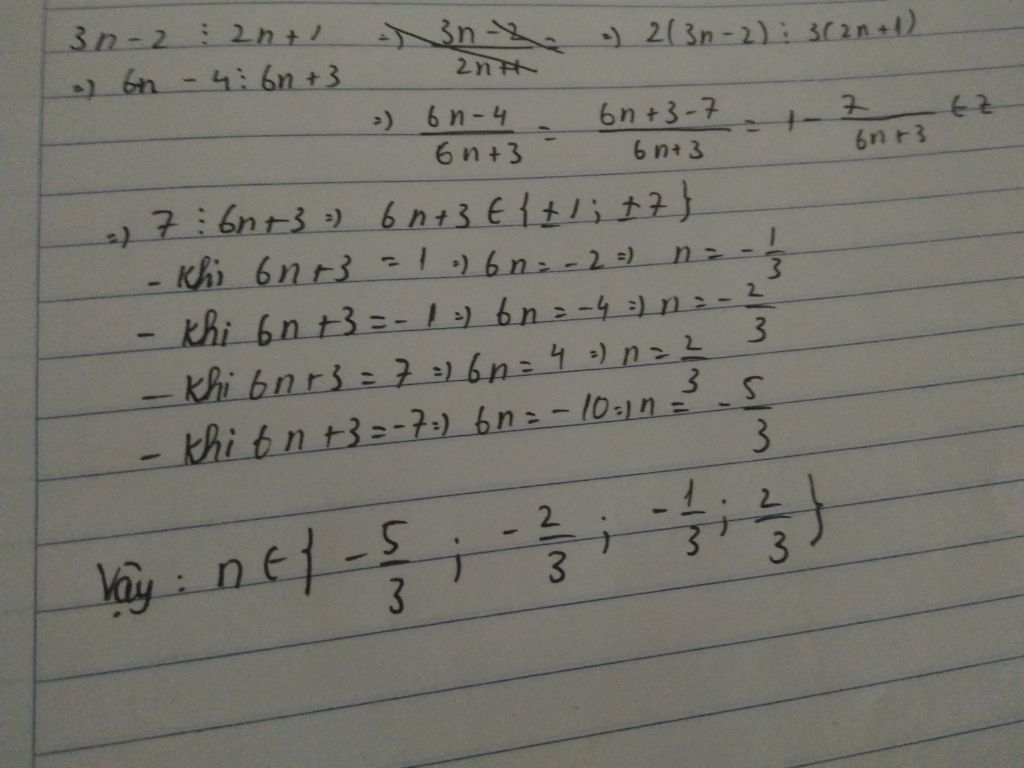 3n-2 ⋮ 2n+1 => 3n-2 / 2n+1 = => 2(3n-2) ⋮ 3(2n+1)
=> 6n - 4 ⋮ 6n+3
=> 6n-4 / 6n+3 = 6n+3-7 / 6n+3 = 1 - 7 / 6n+3 ∈ Z
=> 7 ⋮ 6n+3 => 6n+3 ∈ {±1; ±7}
- Khi 6n+3 = 1 => 6n = -2 => n = -1/3
- Khi 6n+3 = -1 => 6n = -4 => n = -2/3
- Khi 6n+3 = 7 => 6n = 4 => n = 2/3
- Khi 6n+3 = -7 => 6n = -10 => n = -5/3
Vậy : n ∈ { -5/3 ; -2/3 ; -1/3 ; 2/3 }